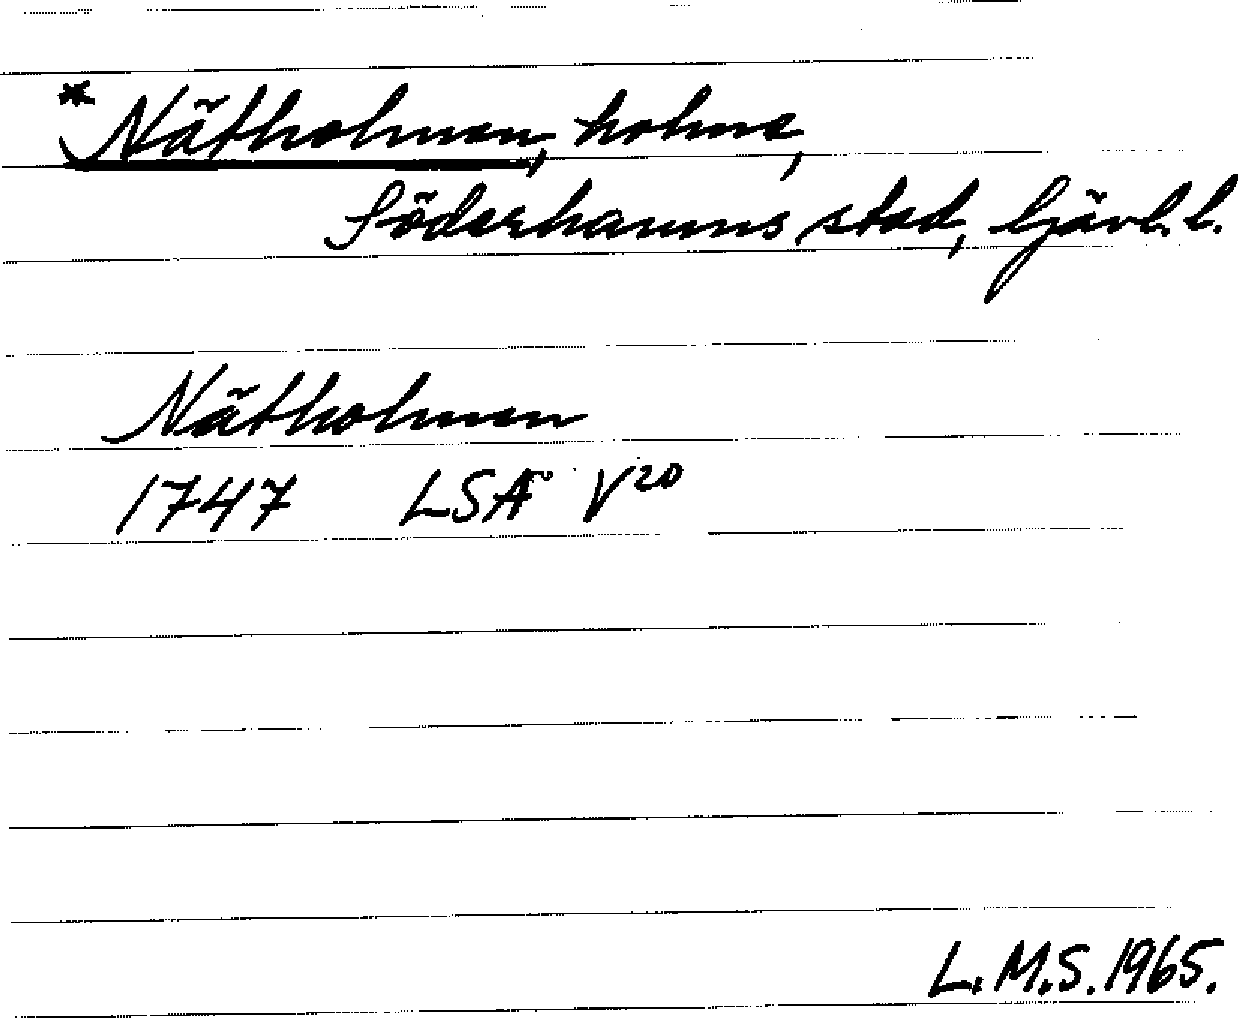 * Nätholmen, holme,
Söderhamns stad, Gävl. l.
Nätholmen
1747 LSA V²⁰
L.M.S. 1965.